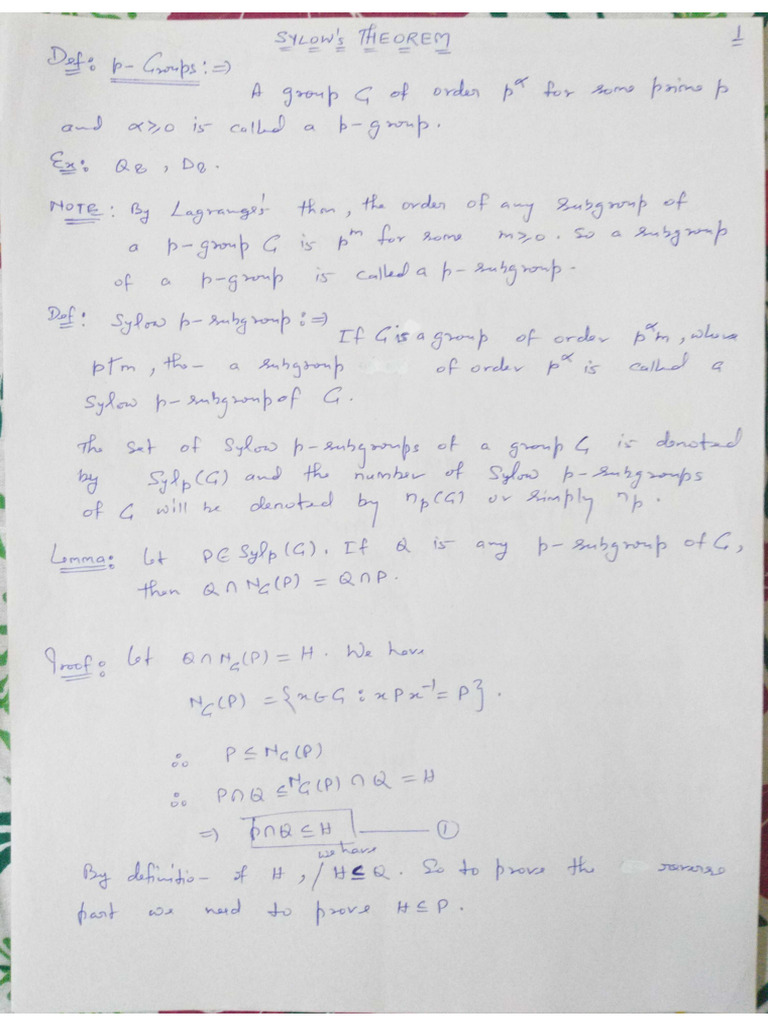 SYLOW'S THEOREM 1
Def: p-Groups :⇒
A group G of order p^α for some prime p
and α⩾0 is called a p-group.
Ex: Q8, D8.
NOTE: By Lagrange's thm, the order of any subgroup of
a p-group G is p^m for some m⩾0. So a subgroup
of a p-group is called a p-subgroup.
Def: Sylow p-subgroup :⇒
If G is a group of order p^α m, where
p∤m, then a subgroup of order p^α is called a
Sylow p-subgroup of G.
The set of Sylow p-subgroups of a group G is denoted
by Sylp(G) and the number of Sylow p-subgroups
of G will be denoted by np(G) or simply np.
Lemma: Let P∈Sylp(G). If Q is any p-subgroup of G,
then Q∩NG(P) = Q∩P.
Proof: Let Q∩NG(P) = H. We have
NG(P) = {x∈G : xPx⁻¹ = P}.
∴ P ≤ NG(P)
∴ P∩Q ≤ NG(P)∩Q = H
⇒ P∩Q ≤ H —— ①
we have
By definition of H, / H ≤ Q. So to prove the reverse
part we need to prove H ≤ P.